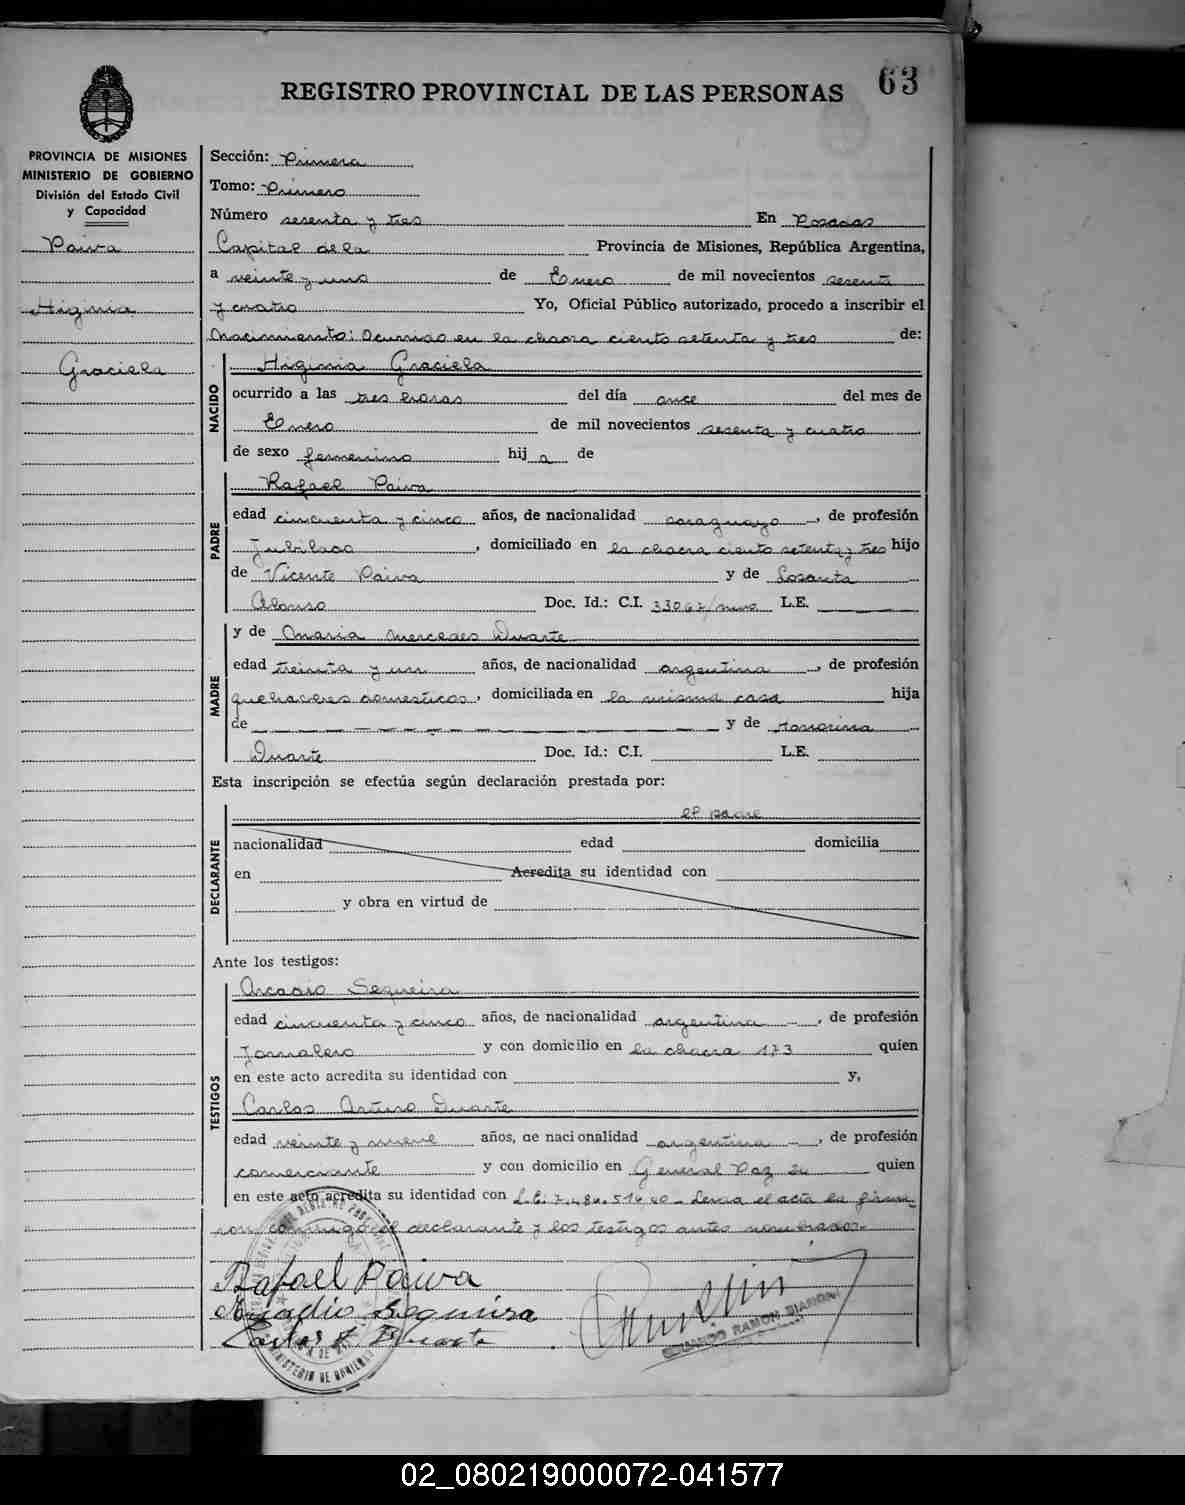 63
REGISTRO PROVINCIAL DE LAS PERSONAS
PROVINCIA DE MISIONES
MINISTERIO DE GOBIERNO
División del Estado Civil
y Capacidad
Paiva
Higinia
Graciela
Sección: Primera
Tomo: Primero
Número sesenta y tres En Posadas
Capital de la Provincia de Misiones, República Argentina,
a veinte y uno de Enero de mil novecientos sesenta
y cuatro Yo, Oficial Público autorizado, procedo a inscribir el
Nacimiento: Ocurrido en la chacra ciento setenta y tres de:
NACIDO
Higinia Graciela
ocurrido a las tres horas del día once del mes de
Enero de mil novecientos sesenta y cuatro
de sexo femenino hij a de
PADRE
Rafael Paiva
edad cincuenta y cinco años, de nacionalidad paraguayo, de profesión
Jubilado, domiciliado en la chacra ciento setenta y tres hijo
de Vicente Paiva y de Losanta
Alonso Doc. Id.: C.I. 33067/mnes L.E.
MADRE
y de Maria Mercedes Duarte
edad treinta y un años, de nacionalidad argentina, de profesión
quehaceres domesticos, domiciliada en la misma casa hija
de y de Honorina
Duarte Doc. Id.: C.I. L.E.
Esta inscripción se efectúa según declaración prestada por:
DECLARANTE
el padre
nacionalidad edad domicilia
en Acredita su identidad con
y obra en virtud de
Ante los testigos:
TESTIGOS
Arcadio Sequeira
edad cincuenta y cinco años, de nacionalidad argentina, de profesión
Jornalero y con domicilio en la chacra 173 quien
en este acto acredita su identidad con y,
Carlos Arturo Duarte
edad veinte y nueve años, de nacionalidad argentina, de profesión
comerciante y con domicilio en General Paz quien
en este acto acredita su identidad con L.E. 7.484.514 Leida el acta la firma-
ron conmigo el declarante y los testigos antes nombrados.-
Rafael Paiva
Arcadio Sequeira
Carlos A Duarte
RAMON BIANCHI
MINISTERIO DE GOBIERNO
02_080219000072-041577